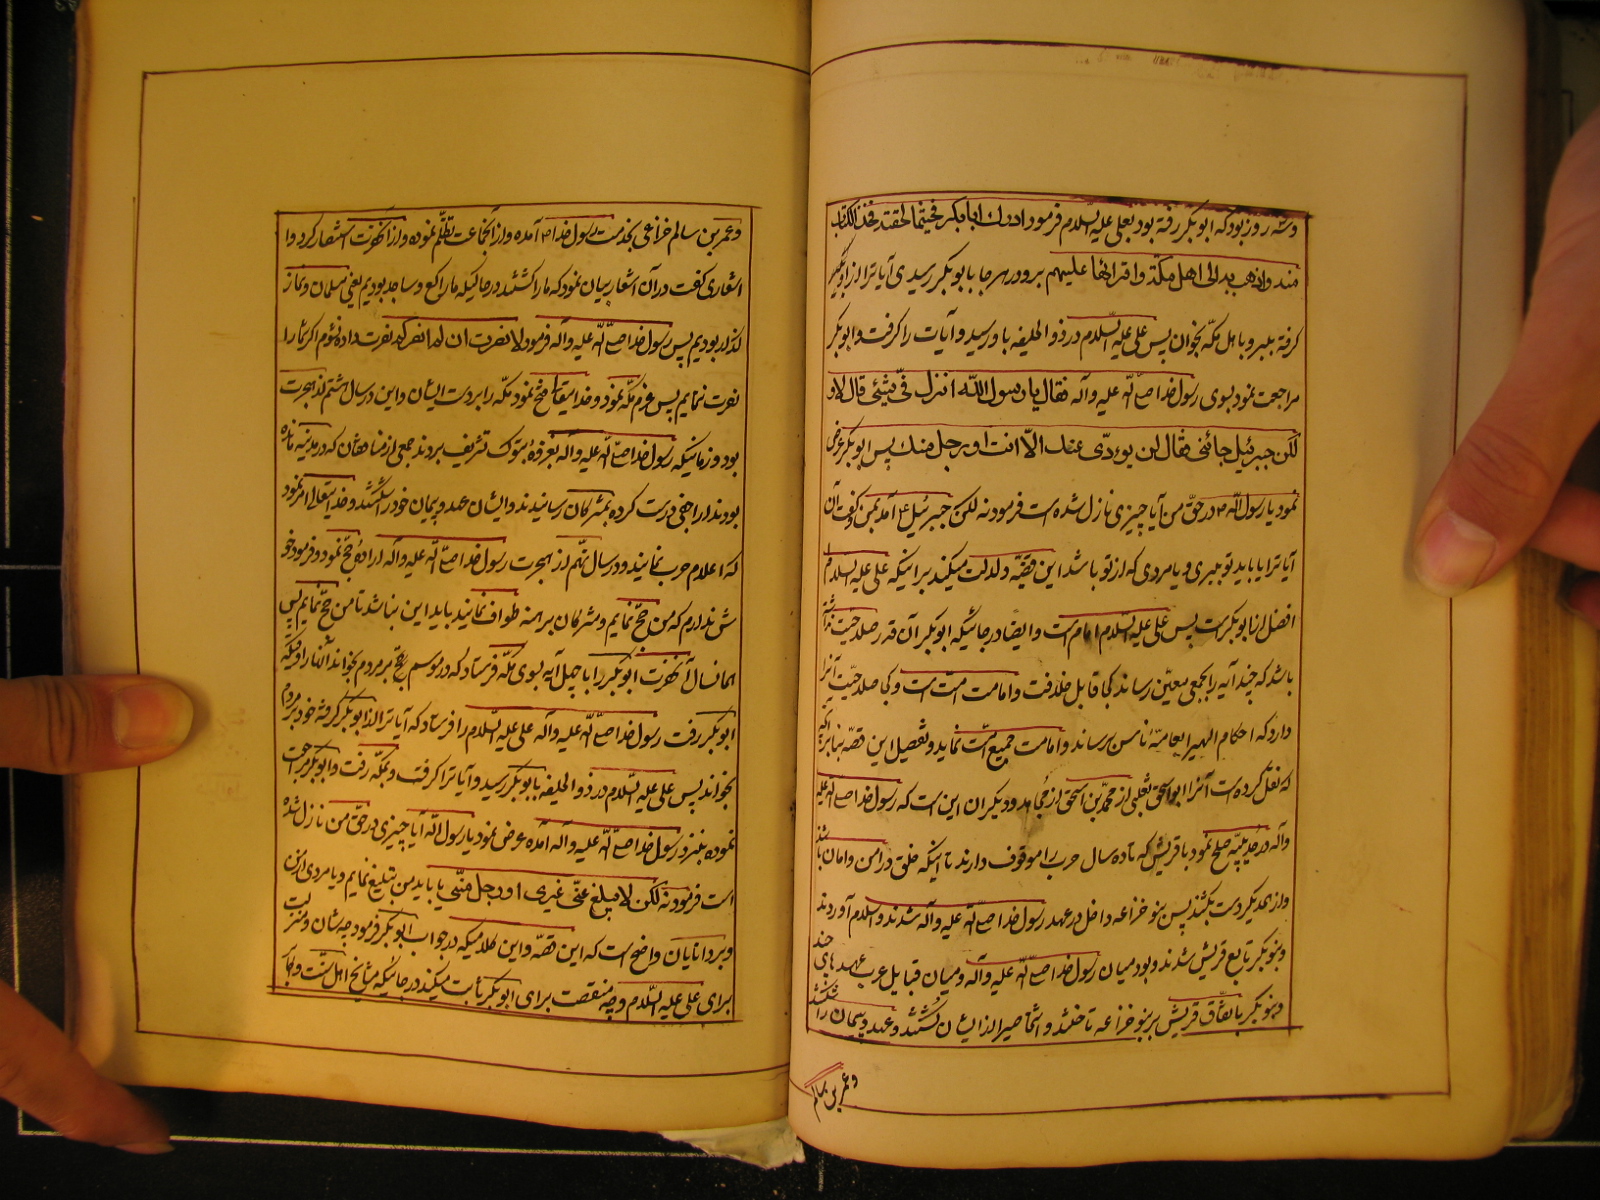 وسه روز بود که ابو بکر رفته بود بعلی علیه السلام فرمود ادرک ابابکر فحیثما لحقته فخذ الکتاب
منه واذهب به الی اهل مکة واقراها علیهم برو در هر جا بابو بکر رسیدی آیات را از او بگیر
گرفته ببر و با هل مکه بخوان پس علی علیه السلام در ذو الحلیفه باو رسید و آیات را گرفت و ابو بکر
مراجعت نمود بسوی رسول خدا صلی الله علیه وآله فقال یا رسول الله انزل فیّ شیئ قال لا و
لکن جبرئیل جائنی فقال لن یؤدّی عنک الاّ انت او رجل منک پس ابو بکر عرض
نمود یا رسول الله ص در حق من آیا چیزی نازل شده است فرمود نه لکن جبرئیل ع آمد بمن و گفت آن
آیات را یا باید تو ببری و یا مردی که از تو باشد این قضیّه دلالت میکند بر اینکه علی علیه السلام
افضل از ابو بکر است پس علی علیه السلام امام است و ایضا در جائیکه ابو بکر آن قدر صلاحیت نداشته
باشد که چند آیه را بجمعی معیّن رساند کجا قابل خلافت و امامت امّت است و کجا صلاحیّت آنرا
دارد که احکام الهیه را بعامّه ناس برساند و امامت جمیع امّت نماید و تفصیل این قصّه بنا بر آنکه
که نقل کرده است آنرا ابو اسحق ثعلبی از محمد بن اسحق از مجاهد و دیگران این است که رسول خدا صلی الله علیه
وآله در حدیبیّه صلح نمود با قریش که تا ده سال حرب را موقوف دارند تا اینکه خلق در امن و امان باشند
و از همدیگر دست بکشند پس بنو خزاعه داخل در عهد رسول خدا صلی الله علیه وآله شدند و اسلام آوردند
و بنو بکر تابع قریش شدند و بود میان رسول خدا صلی الله علیه وآله و میان قبایل عرب عهدهای چند
و بنو بکر با تفاق قریش بر بنو خزاعه تاختند و اشخاصیرا از ایشان کشتند و عهد و پیمان را شکستند
وعمر بن سالم
وعمر بن سالم خزاعی بخدمت رسول خدا ص آمده و از آنجماعت تظلّم نموده و از آنحضرت استنصار کرد و
اشعاری گفت در آن اشعار بیان نمود که ما را کشتند در حالیکه ما راکع و ساجد بودیم یعنی مسلمان و نماز
گذار بودیم پس رسول خدا صلی الله علیه وآله فرمود لا نصرت ان لم انصرکم نصرت داده نشوم اگر شما را
نصرت ننمایم پس عزم مکّه نمود و خدایتعالی فتح نمود مکّه را بر دست ایشان و این در سال هشتم از هجرت
بود و زمانیکه رسول خدا صلی الله علیه وآله بغزوهٔ تبوک تشریف بردند جمعی از منافقان که در مدینه مانده
بودند اراجیفی درست کرده بمشرکان رسانیدند و ایشان عهد و پیمان خود را شکستند و خدایتعالی امر نمود
که اعلام حرب نمایند و در سال نهم از هجرت رسول خدا صلی الله علیه وآله ارادهٔ حجّ نمود و فرمود خو
ش ندارم که من حجّ نمایم و مشرکان برهنه طواف نمایند باید این بنا شد تا من حجّ نمایم پس
همانسال آنحضرت ابو بکر را با چهل آیه بسوی مکّه فرستاد که در موسم حجّ بر مردم بخواند
ابو بکر رفت رسول خدا صلی الله علیه وآله علی علیه السلام را فرستاد که آیات را از ابو بکر گرفته خود بر مردم
بخواند پس علی علیه السلام در ذو الحلیفه بابو بکر رسید و آیات را گرفت و بمکّه رفت و ابو بکر مراجعت
نموده بنزد رسول خدا صلی الله علیه وآله آمده عرض نمود یا رسول الله آیا چیزی در حق من نازل شده
است فرمود نه لکن لا یبلغ عنّی غیری او رجل منّی یا باید من تبلیغ نمایم و یا مردی از من
و بر دانایان واضح است که این قصّه و این کلامیکه در جواب ابو بکر فرمود چه شان و منزلت
برای علی علیه السلام و چه منقصت برای ابو بکر ثابت میکند در جائیکه مشایخ اهل سنّت و